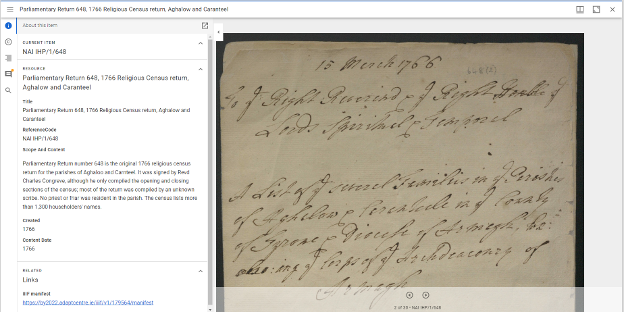 Parliamentary Return 648, 1766 Religious Census return, Aghalow and Caranteel
About this item
CURRENT ITEM
NAI IHP/1/648
RESOURCE
Parliamentary Return 648, 1766 Religious Census return,
Aghalow and Caranteel
Title
Parliamentary Return 648, 1766 Religious Census return, Aghalow and
Caranteel
ReferenceCode
NAI IHP/1/648
Scope And Content
Parliamentary Return number 648 is the original 1766 religious census
return for the parishes of Aghaloo and Carnteel. It was signed by Revd
Charles Congrave, although he only compiled the opening and closing
sections of the census; most of the return was compiled by an unknown
scribe. No priest or friar was resident in the parish. The census lists more
than 1,300 householders' names.
Created
1766
Content Date
1766
RELATED
Links
IIIF manifest
15 March 1766
To ye Right Reverend & ye Right Honble ye
Lords Spiritual & Temporal
A List of ye several Families in ye Parishes
of Aghelow & Corenteele in ye County
of Tyrone & Diocese of Armagh, be:
ing ye Corps of ye Archdeaconry of
Armagh
NAI IHP/1/648